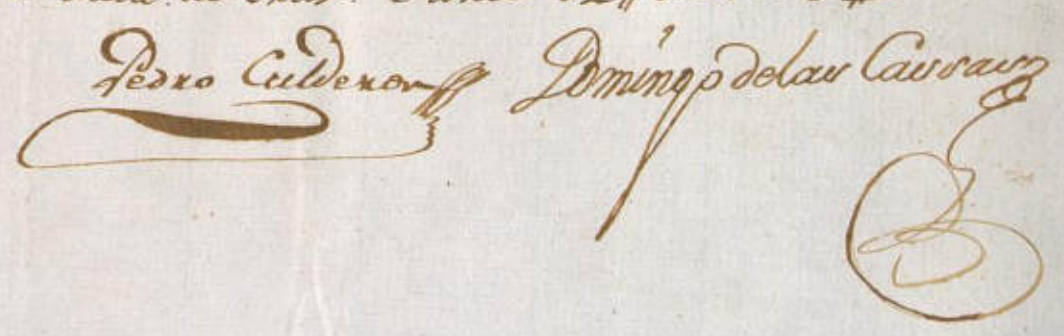 Pedro Calderon Domingo de las Cassas